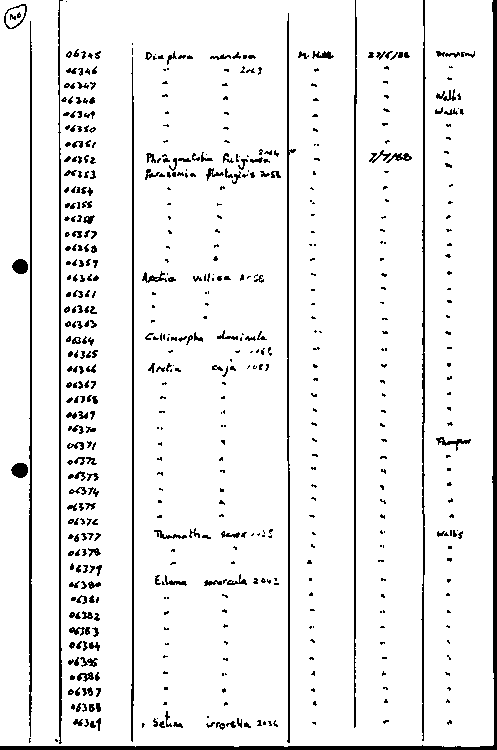 06345 Diaphora mendica M. Hall 22/6/88 Thompson
06346 " " 2063 " " "
06347 " " " " "
06348 " " " " Wallis
06349 " " " " Wallis
06350 " " " " "
06351 " " " " "
06352 Phragmatobia fuliginosa 2064 " 7/7/88 "
06353 Parasemia plantaginis 2056 " " "
06354 " " " " "
06355 " " " " "
06356 " " " " "
06357 " " " " "
06358 " " " " "
06359 " " " " "
06360 Arctia villica " " "
06361 " " " " "
06362 " " " " "
06363 " " " " "
06364 Callimorpha dominula " " "
06365 " " " " "
06366 Arctia caja " " "
06367 " " " " "
06368 " " " " "
06369 " " " " "
06370 " " " " "
06371 " " " " Thompson
06372 " " " " "
06373 " " " " "
06374 " " " " "
06375 " " " " "
06376 " " " " "
06377 Thumatha senex " " Wallis
06378 " " " " "
06379 " " " " "
06380 Eilema sororcula 2043 " " "
06381 " " " " "
06382 " " " " "
06383 " " " " "
06384 " " " " "
06385 " " " " "
06386 " " " " "
06387 " " " " "
06388 " " " " "
06389 Setina irrorella 2036 " " "